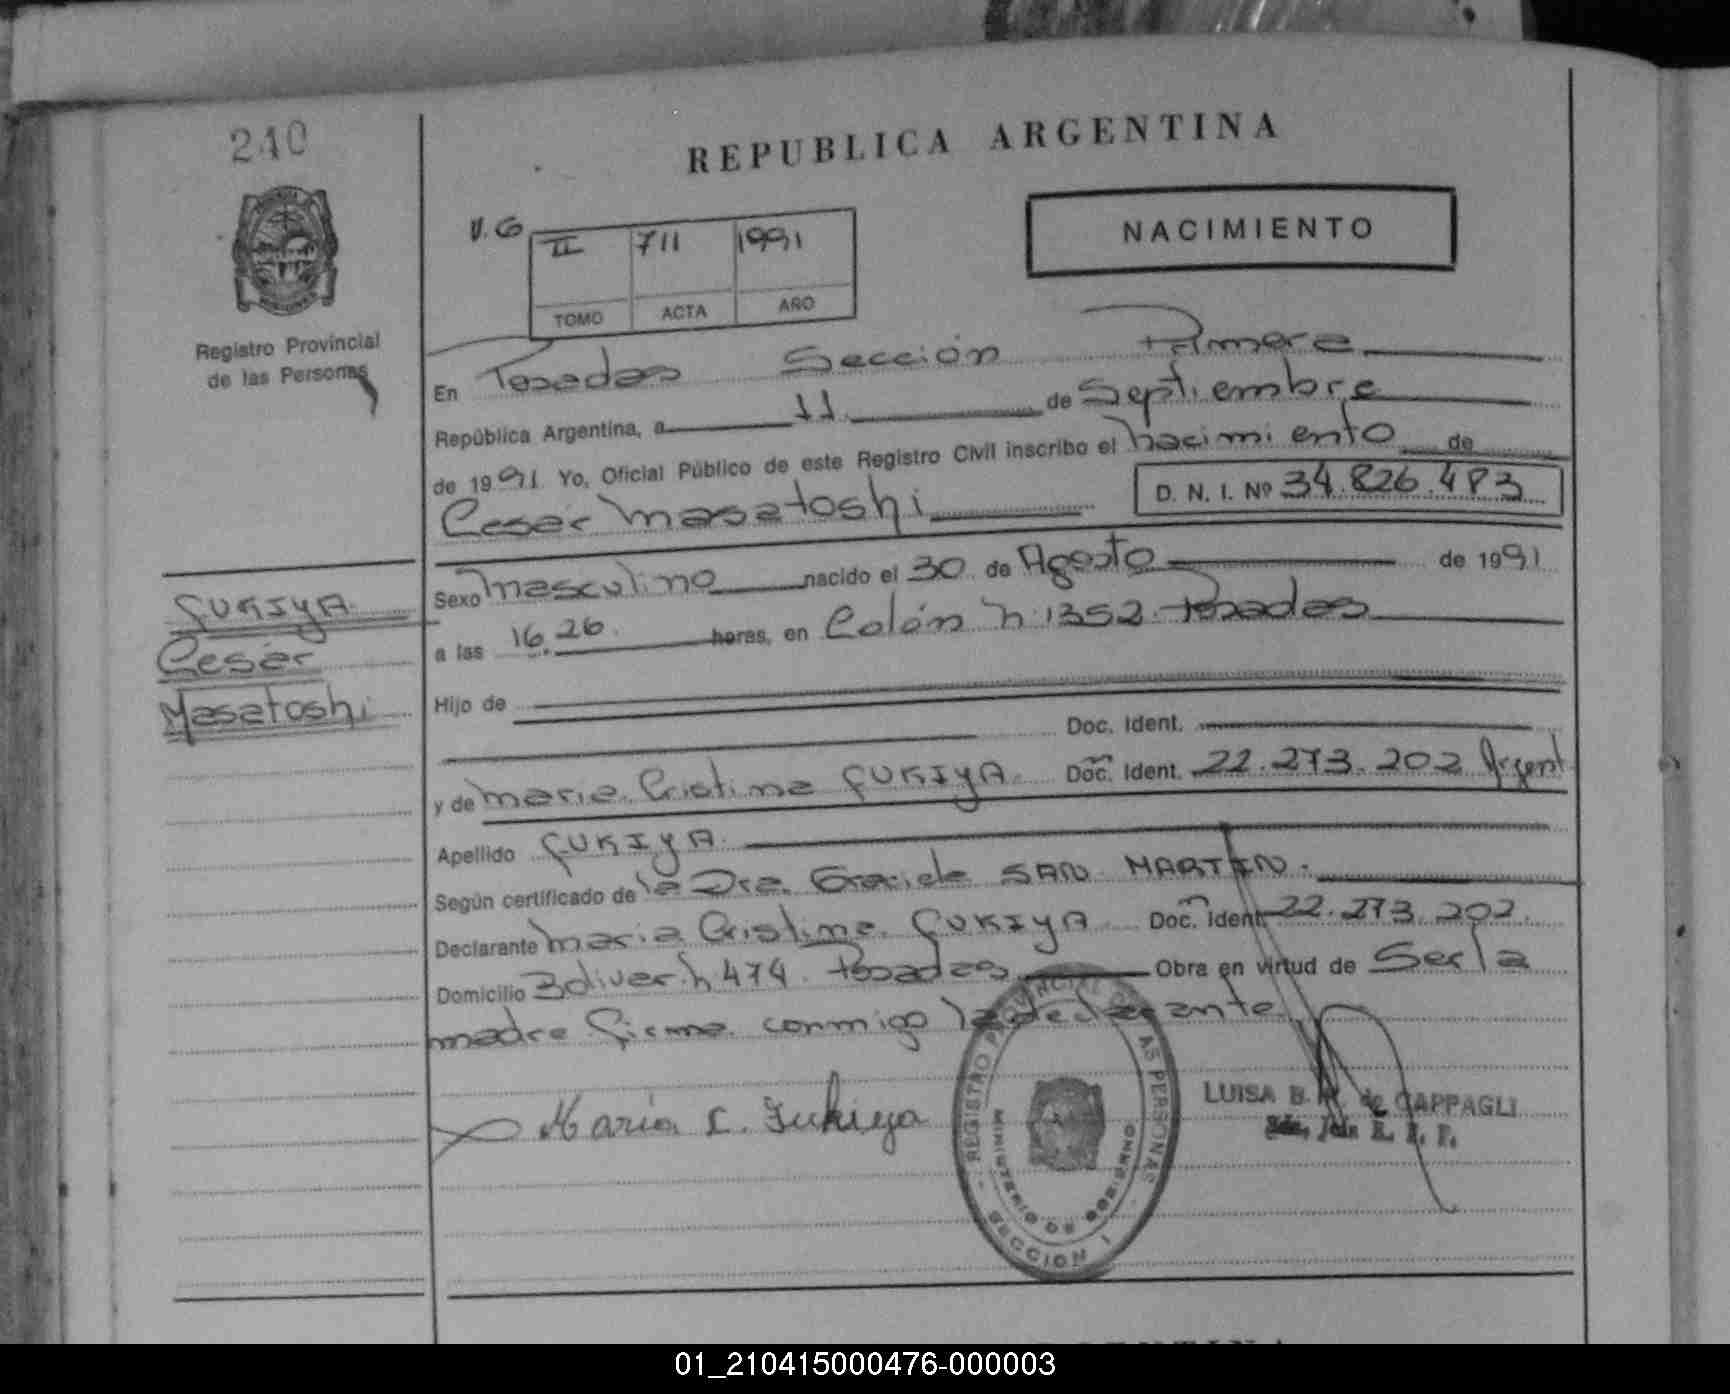 240
REPUBLICA ARGENTINA
NACIMIENTO
V.G
II 711 1991
TOMO ACTA AÑO
Registro Provincial
de las Personas
En Posadas Sección Primera
República Argentina, a 11 de Septiembre
de 1991 Yo, Oficial Público de este Registro Civil inscribo el nacimiento de
Cesar Masatoshi D. N. I. Nº 34.826.483
Sexo masculino nacido el 30 de Agosto de 1991
a las 16.26. horas, en Colón n. 1352. Posadas
FUKIYA
Cesar
Masatoshi
Hijo de
Doc. Ident.
y de Maria Cristina FUKIYA Doc. Ident. 22.273.202 Argent
Apellido FUKIYA
Según certificado de la Dra. Graciela SAN MARTIN.
Declarante Maria Cristina FUKIYA Doc. Ident. 22.273.202.
Domicilio Bolivar n 474. Posadas Obra en virtud de Ser la
madre firma conmigo la declarante
María C. Fukiya
REGISTRO PROVINCIAL DE LAS PERSONAS
MINISTERIO DE GOBIERNO
SECCION 1
LUISA B. de CAPPAGLI
R. P. P.
01_210415000476-000003